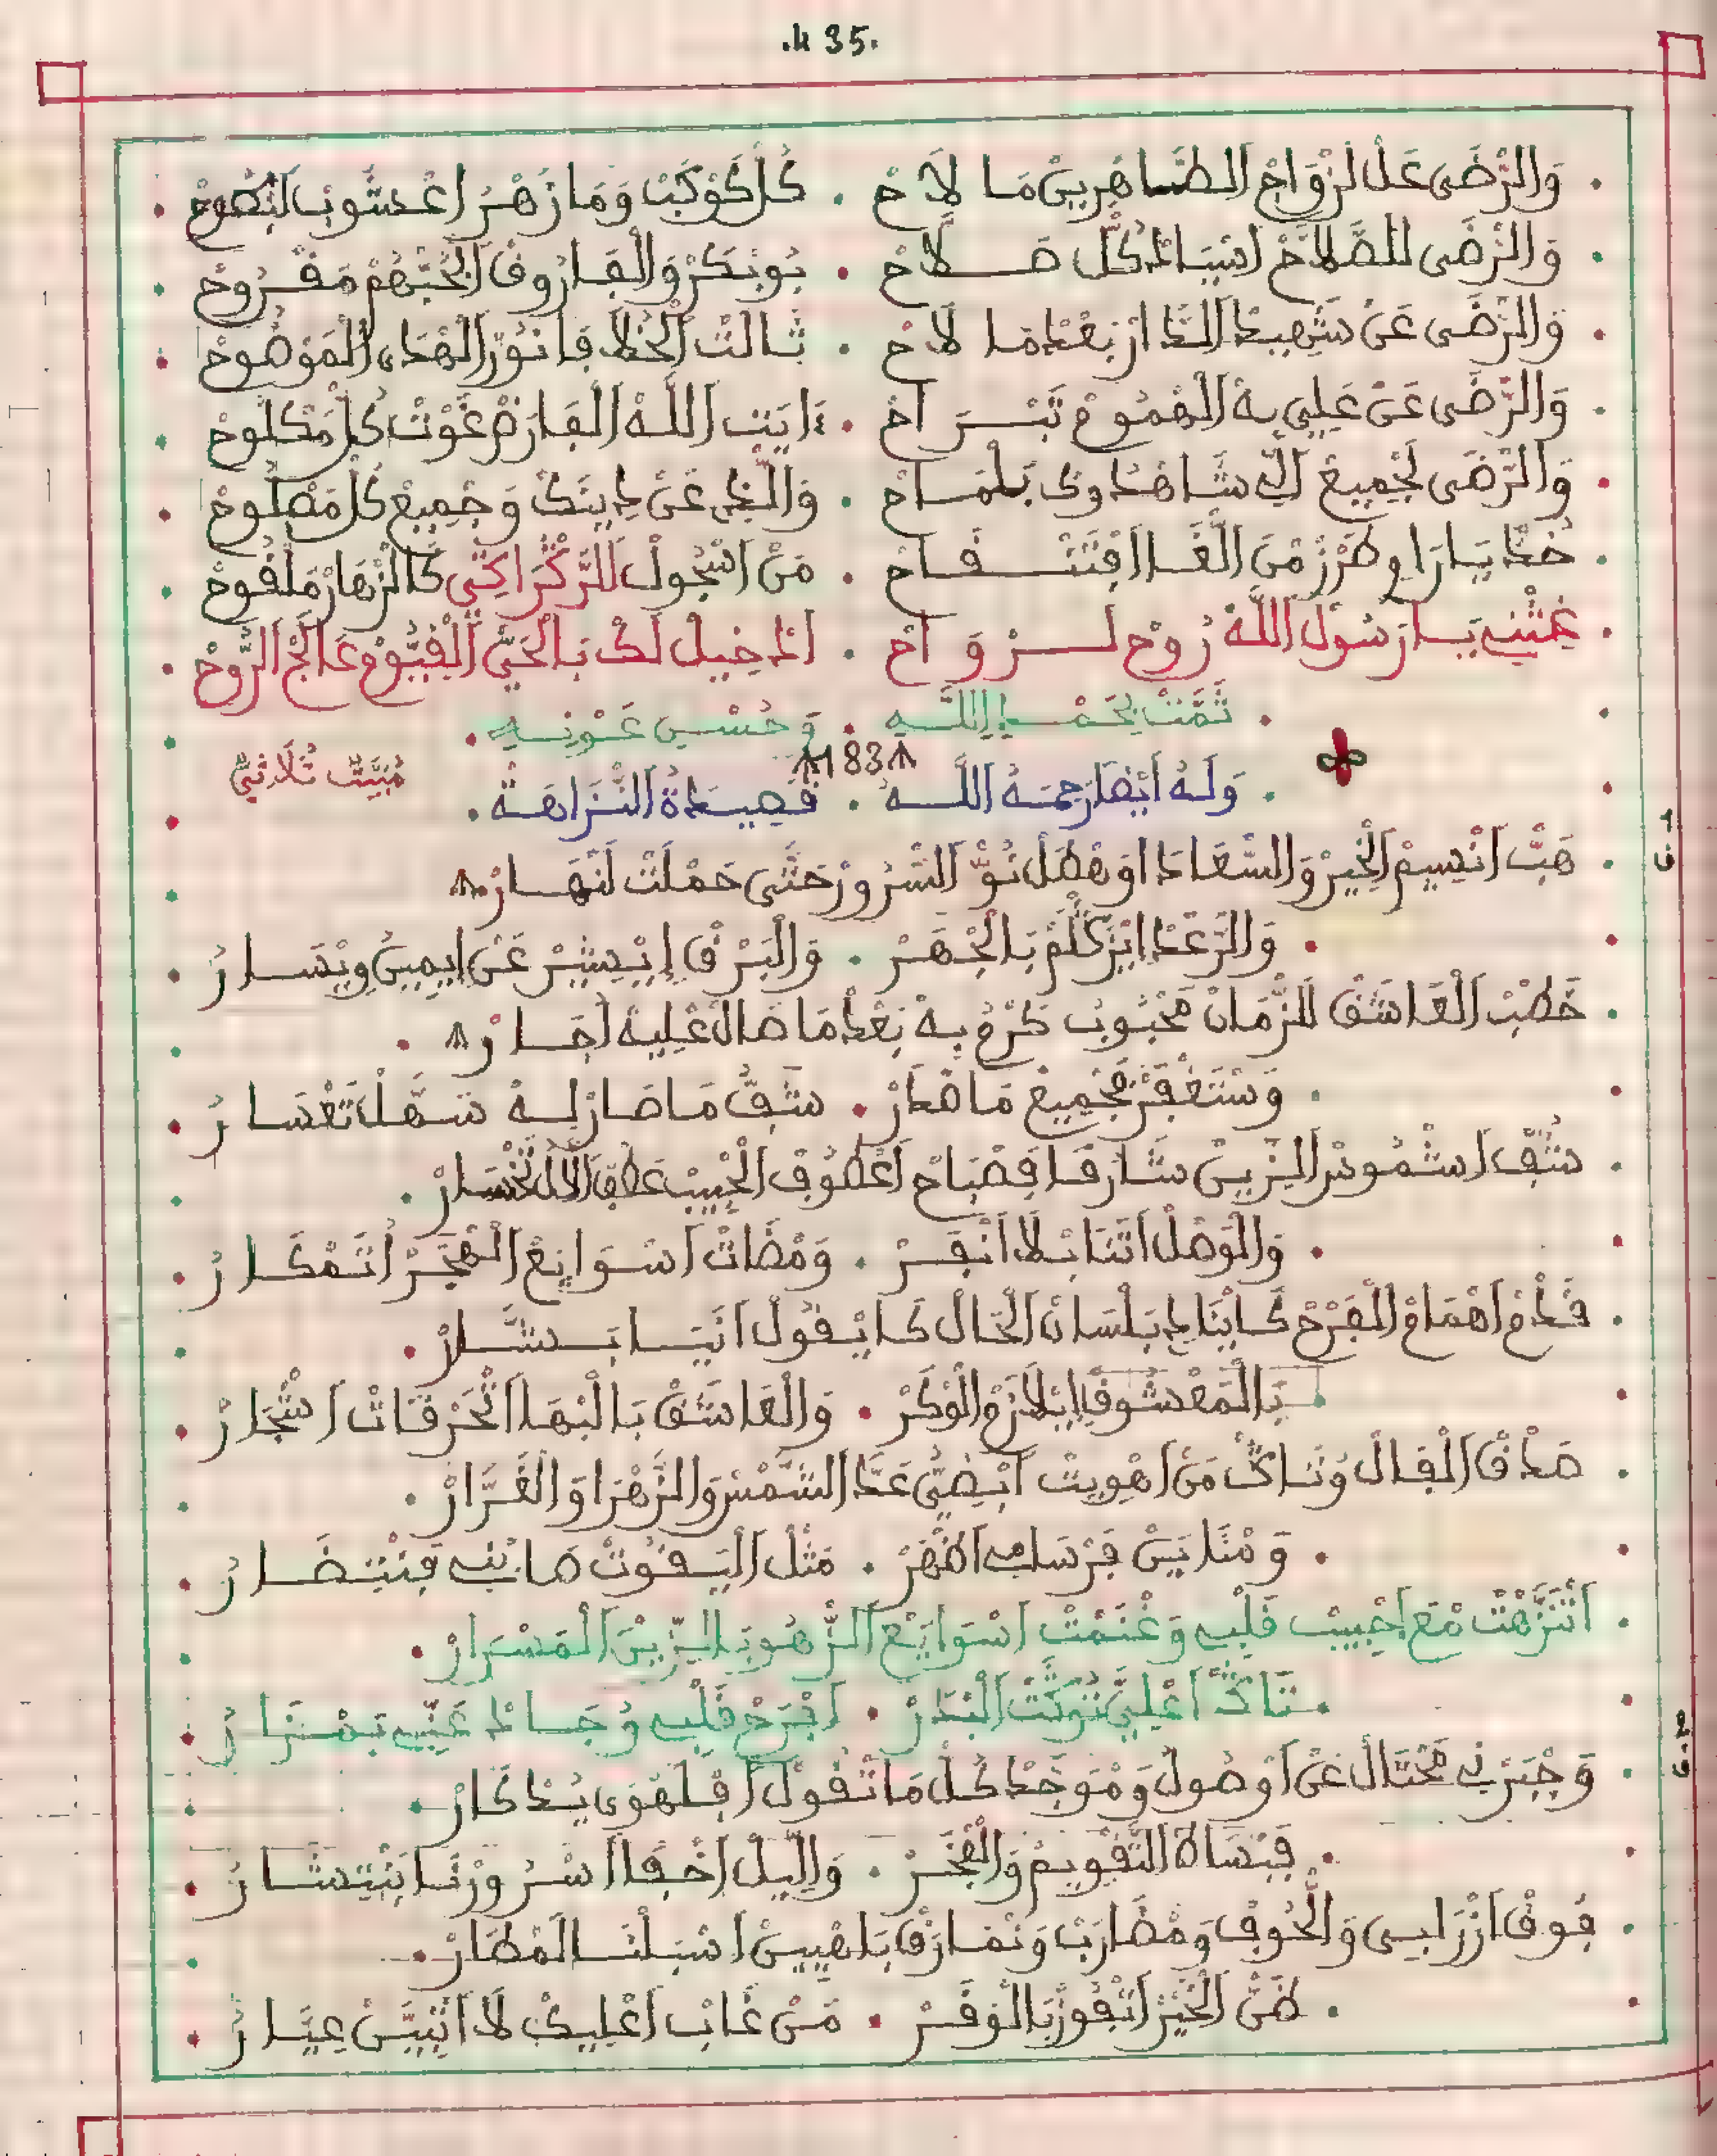 .435.
وَالرّْضَى عَلْ لَزْوَاجْ الطَّاهْرِينْ مَا لَاحْ . كُلْ كَوْكَبْ وَمَا زْهَرْ اعْشُوبْ البْطُوحْ
وَالرّْضَى للصَّلَّاحْ اسْيَادْ كُلّْ صَلَّاحْ . بُوبَكرْ وَالْفَارُوقْ الحُبّْهُمْ مَفْرُوحْ
وَالرّْضَى عَنْ شَهِيدْ الدَّارْ بَعْدْ مَا لَاحْ . ثَالَتْ الْخُلَافَا نُورْ الْهْدَى الْمَوْضُوحْ
وَالرّْضَى عَنْ عَلِي بِهْ الْهْمُومْ تَبْرَاحْ . ءَايَتْ اللَّهْ الْفَارَضْ غَوْتْ كُلْ مَكْلُوحْ
وَالرّْضَى لَجْمِيعْ الِّي شَاهْدُوكْ بَلْمَاحْ . وَالِّي عَنْ دِينَكْ وَجْمِيعْ كُلْ مَصْلُوحْ
خُدْ يَا رَاوِي طَرْزْ مْنَ الْغَا افْتَتْفَاحْ . مَنْ اسْجُولْ للرَّكْرَاكِي كَالزْهَارْ مَلْفُوحْ
غِثْنِي يَا رَسُولْ اللَّهْ رُوحْ لَرْوَاحْ . ادْخِيلْ لَكْ بَالْحَيّْ الْقِيُّومْ عَالَجْ الرُّوحْ
. تَمَّتْ بِحَمْدِ اللَّهِ . وَحُسْنِ عَوْنِهِ .
183
. وَلَهُ أَيْضًا رَحِمَهُ اللَّه . قَصِيدَةُ النَّزَاهَةْ . مُبَيَّتْ ثُلَاثِيّْ
. هَبّْ انْسِيمْ الْخِيرْ وَالسّْعَادَا وَهْطَلْ نَوّْ السّْرُورْ حَتَّى حَمْلَتْ لَنْهَارْ
. وَالرَّعْدْ ايْزَكْلَمْ بَالْجْهَرْ . وَالْبَرْقْ إيْشِيرْ عَنْ ايمِينْ وِيْسَارْ .
. خَطْبْ الْعَاشَقْ للزّْمَانْ مَحْبُوبْ كَرْمُ بِهْ بَعْدْ مَا طَالْ عْلِيهْ اجْفَارْ .
. وَسْتَغْفَرْ بَجْمِيعْ مَا هْدَرْ . شَفّْ مَا صَارْ لِهْ سَهَّلْ تَعْسَارُ .
. شَفّْ اشْمُوسْ الزِّينْ شَارْقَا فَصْبَاحْ اعْطُوفْ الْحْبِيبْ عَطْفْ الْخْسَارْ .
. وَالْوَصْلْ اتْنَا بْلَا انْفَرْ . وَمْضَاتْ اسْوَايَعْ الْهْجَرْ اتَمْكَارُ .
. قَدْمْ اهْمَامْ الْفَرْحْ كَايْنَادِي بَلْسَانْ الْحَالْ كَايْقُولْ انْيَا بَشَّارْ .
. بَالْمَعْشُوقْ ايْلَازَمْ الْوَكَرْ . وَالْعَاشَقْ بَالْبْهَا الْحَرْقَاتْ اشْجَارْ
. صَدْقْ الْفَالْ وُتَاكْ مَنْ اهْوِيتْ ابْضَيّْ عَدّْ الشَّمْسْ وَالزَّهْرَا وَالْغَرَّارْ .
. وَمْنَايَنْ فَرْسَامِي اظْهَرْ . مَثْلْ الْيَقُوتْ صَابْنِي فَنْتِضَارُ
. اتْنَزَّهْتْ مْعَ احْبِيبْ قَلْبِي وَغْنَمْتْ اسْوَايَعْ الزّْهُو بَالزِّينْ الْمَسْرَارْ .
. تَاكْ اعْلِيَّ نُوكْتْ الْبْدَرْ . افْرَحْ قَلْبِي وْجَادْ عَنِّي بَمْزَارُ .
. وَجْبَرْنِي مَحْتَالْ عَنْ اوْصُولُ وَمْوَجَّدْ كُلْ مَا نْقُولْ افْلَهْوَى يُدْكَارْ .
. فَبْسَاطْ التَّقْوِيمْ وَالْفْخَرْ . وَاللِّيلْ اخْفَا اسْرُورْنَا بَنْتِشَارُ .
. فُوقْ ازْرَابِي وَالْحُوفْ وَمْضَارَبْ وَنْمَارَقْ بَاهْيِينْ اسْبَلْتْ الَمْطَارْ .
. ظَنّْ الْخَيْرْ اتْفُوزْ بَالْوْفَرْ . مَنْ غَابْ اعْلِيكْ لَا اتْبَيَّنْ عِيَّارُ .